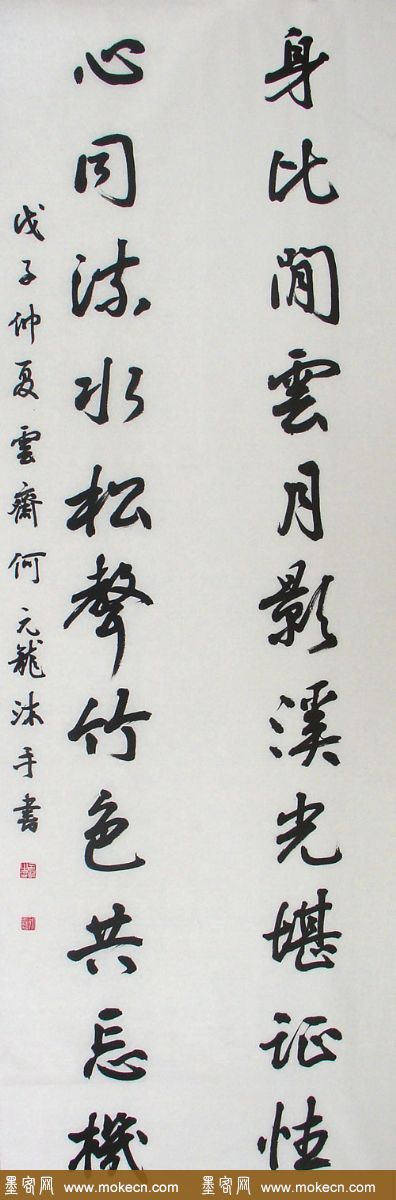 身比閒雲月影溪光堪证性
心同流水松聲竹色共忘機
戊子仲夏雲齋何元龍沐手書
墨客网 www.mokecn.com 墨客网 www.mokecn.com